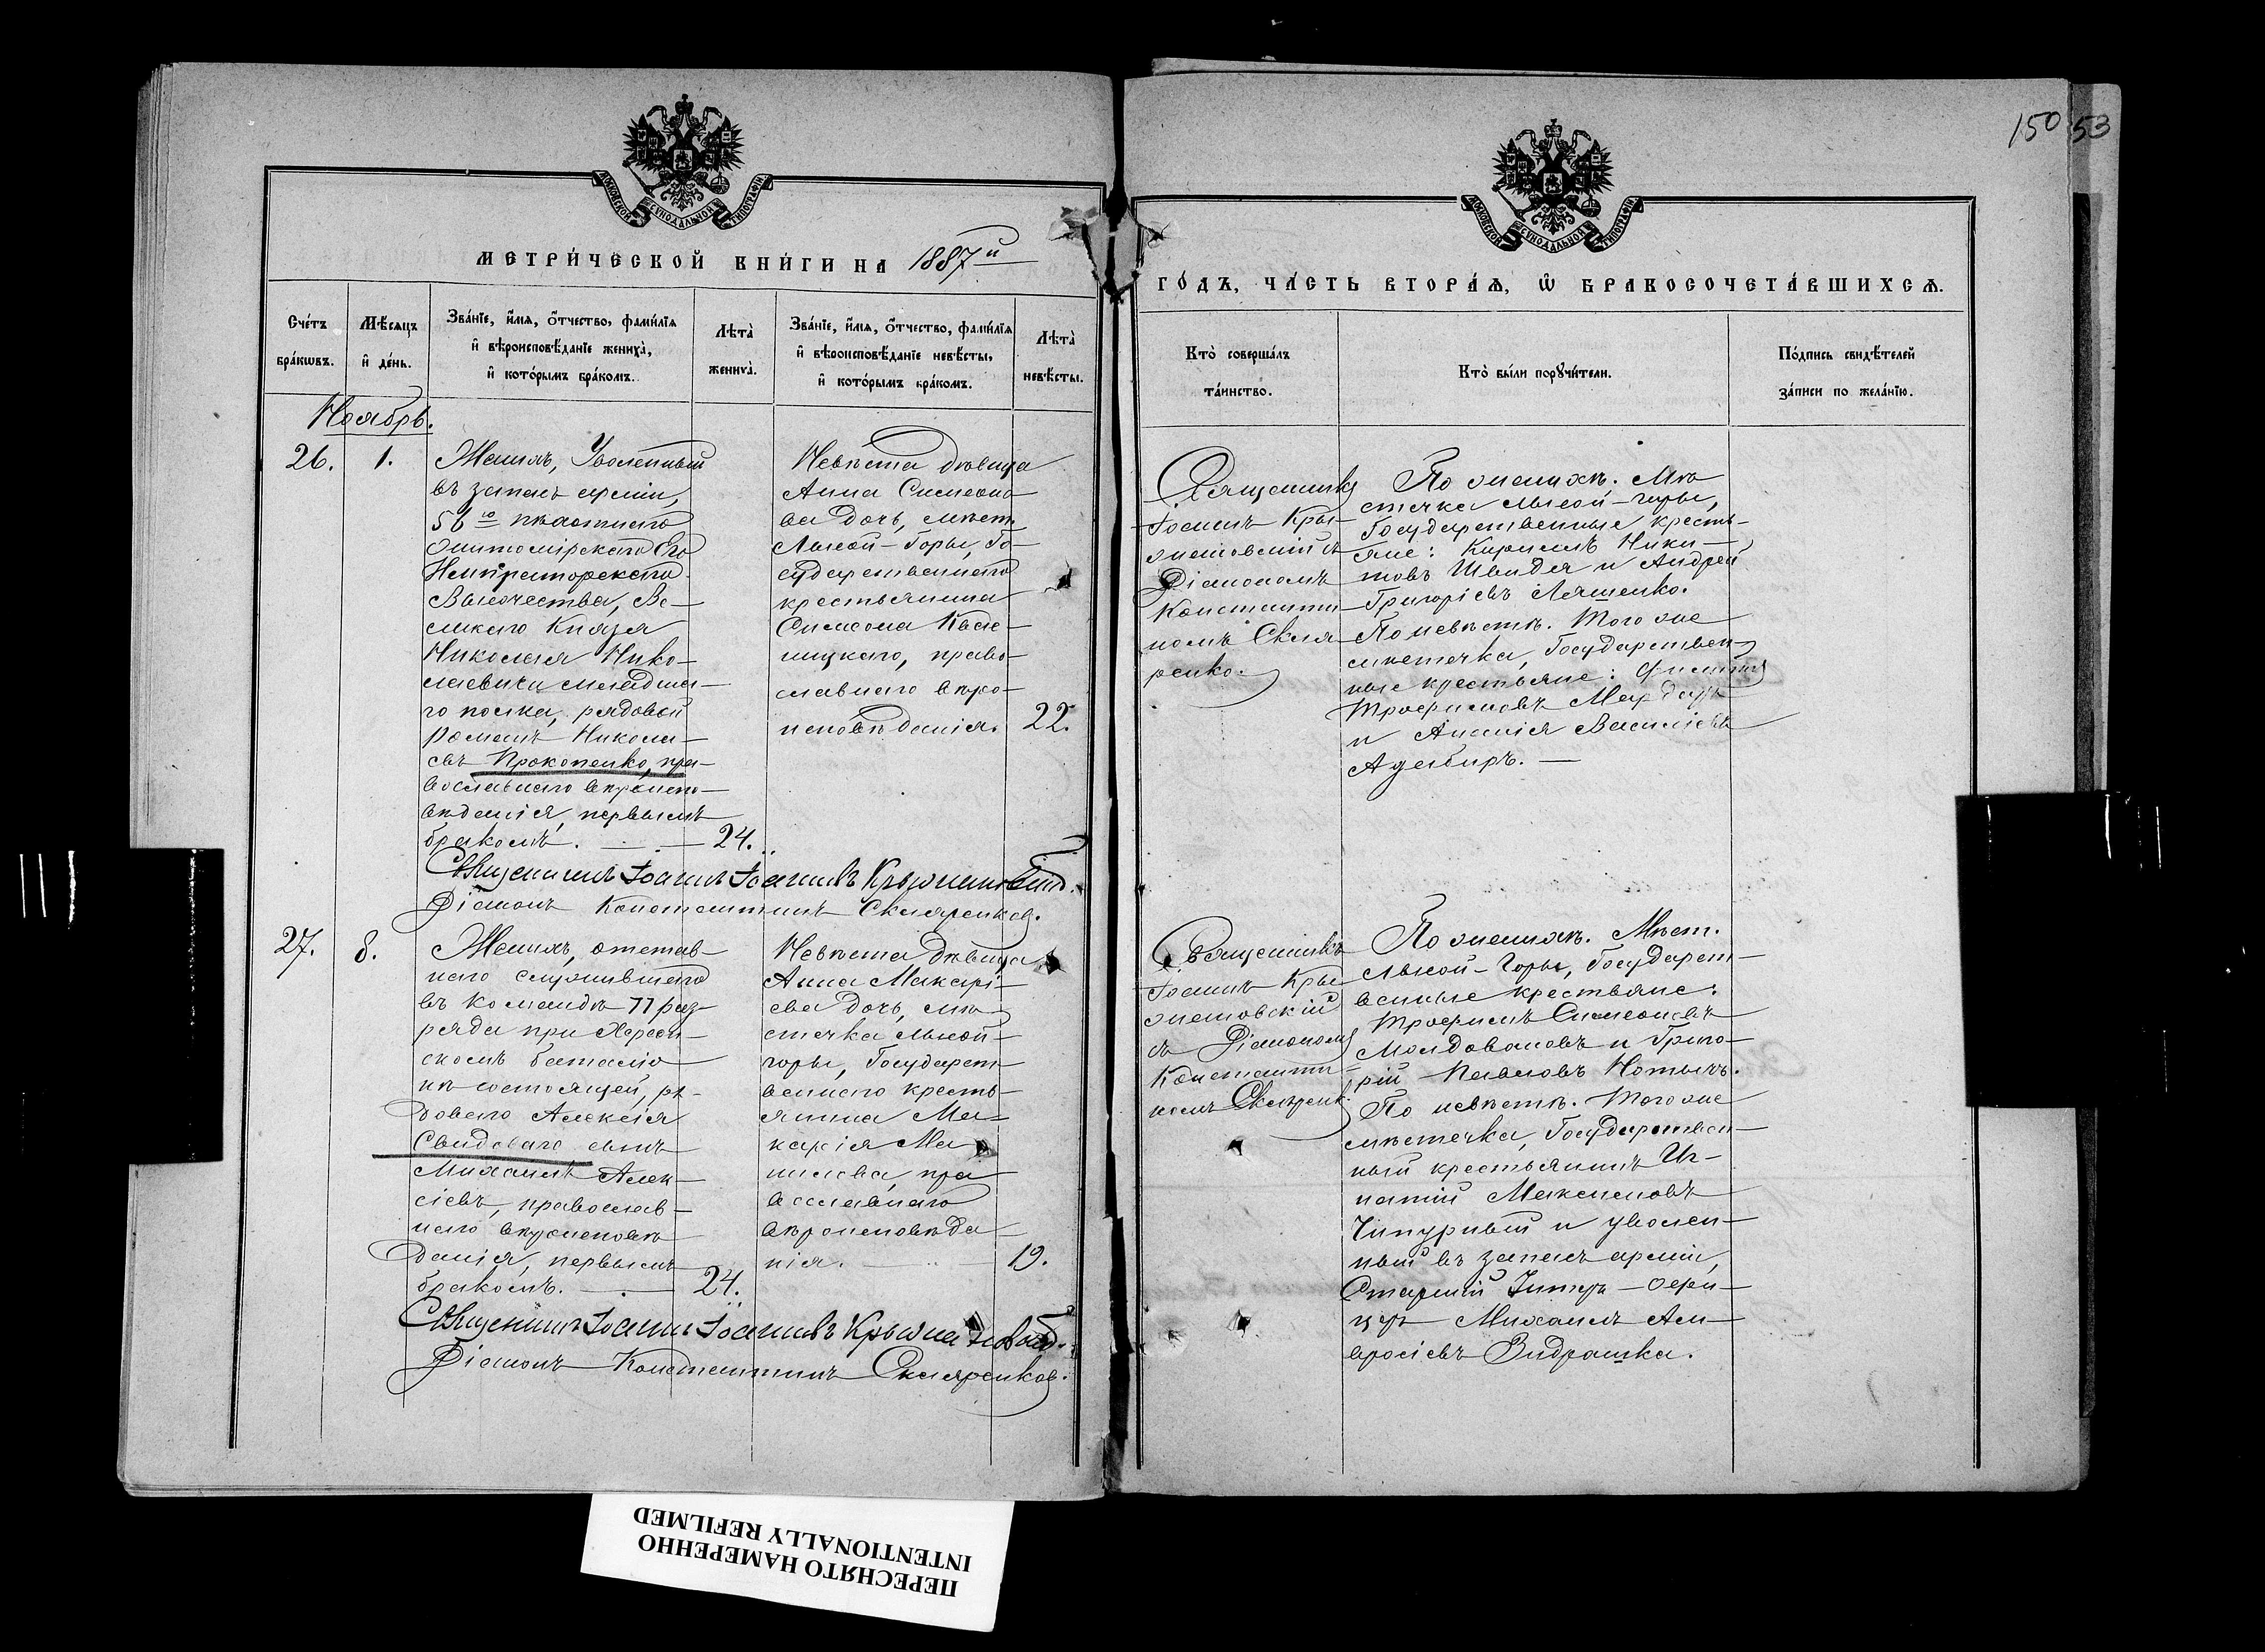 150 53
МОСКОВСКОЙ СУНОДАЛЬНОЙ ТИПОГРАФІИ
МЕТРИ́ЧЕСКОЙ КНИ́ГИ НА 1887й
Сче́тъ бра́кѡвъ.
Мѣ́сѧцъ и҆ де́нь.
Зва́нїе, и҆́мѧ, ѻ҆́тчество, фами́лїѧ
и҆ вѣроисповѣ́данїе жениха̀,
и҆ кото́рымъ бра́комъ.
Лѣта̀ жениха̀.
Зва́нїе, и҆́мѧ, ѻ҆́тчество, фами́лїѧ
и҆ вѣроисповѣ́данїе невѣ́сты,
и҆ кото́рымъ бра́комъ.
Лѣта̀ невѣ́сты.
Ноябрь.
26. 1.
Женихъ, Уволенный
въ запасъ арміи,
56го пѣхотнаго
Житомірскаго Его
Императорскаго
Высочества, Ве-
ликаго Князя
Николая Нико-
лаевича младша-
го полка, рядовой
Романъ Никола-
евъ Прокопенко, пра-
вославнаго вѣроиспо-
вѣданія, первымъ
бракомъ. 24.
Невѣста дѣвица
Анна Симеоно-
ва дочь, мѣст.
Лысой-Горы, Го-
сударственнаго
крестьянина
Симеона
православнаго вѣро-
исповѣданія. 22.
Священникъ Іоаннъ Іоанновъ Крыжановскій.
Діаконъ Константинъ Скляренков.
27. 8.
Женихъ, отстав-
наго служившаго
въ командѣ 11 раз-
ряда при Херсон-
скомъ баталіо-
нѣ состоящей, ря-
доваго Алексія
Свидоваго сынъ
Михаилъ Алек-
сіевъ, православ-
наго вѣроисповѣ-
данія, первымъ
бракомъ. 24.
Невѣста дѣвица
Анна Макарі-
ева дочь, мѣ-
стечка Лысой-
горы, Государст-
веннаго кресть-
янина Ма-
карія
православнаго
вѣроисповѣда-
нія. 19.
Священникъ Іоаннъ Іоанновъ Крыжановскій.
Діаконъ Константинъ Скляренков.
МОСКОВСКОЙ СУНОДАЛЬНОЙ ТИПОГРАФІИ
ГО́ДЪ, ЧА́СТЬ ВТОРА́Ѧ, Ѡ҆ БРАКОСОЧЕТА́ВШИХСѦ.
Кто̀ соверша́лъ
та́инство.
Кто̀ бы́ли порꙋчи́тели.
По́дпись свидѣ́телей
за́писи по жела́нїю.
Священникъ
Іоаннъ Кры-
жановскій съ
Діакономъ
Константи-
номъ Скля-
ренко.
По женихѣ. Мѣ-
стечка Лысой-горы,
Государственные кресть-
яне: Кириллъ Ники-
товъ Швидя и Андрей
Григорієвъ Ляшенко.
По невѣстѣ. Того же
мѣстечка, Государствен-
ные крестьяне:
Трофимовъ
и Ананія Василіевъ
Священникъ
Іоаннъ Кры-
жановскій
съ Діакономъ
Константи-
номъ Скляренк.
По женихѣ. Мѣст.
Лысой-Горы, Государст-
венные крестьяне:
Трофимъ Симеоновъ
Молдовановъ и Григо-
рій Павловъ
По невѣстѣ. Того же
мѣстечка, Государствен-
ный крестьянинъ Иг-
натій Максимовъ
Чипурный и уволен-
ный въ запасъ арміи,
Старшій Унтеръ-офи-
церъ Михаилъ Ам-
вросіевъ Видрашка.
ПЕРЕСНЯТО НАМЕРЕННО
INTENTIONALLY REFILMED